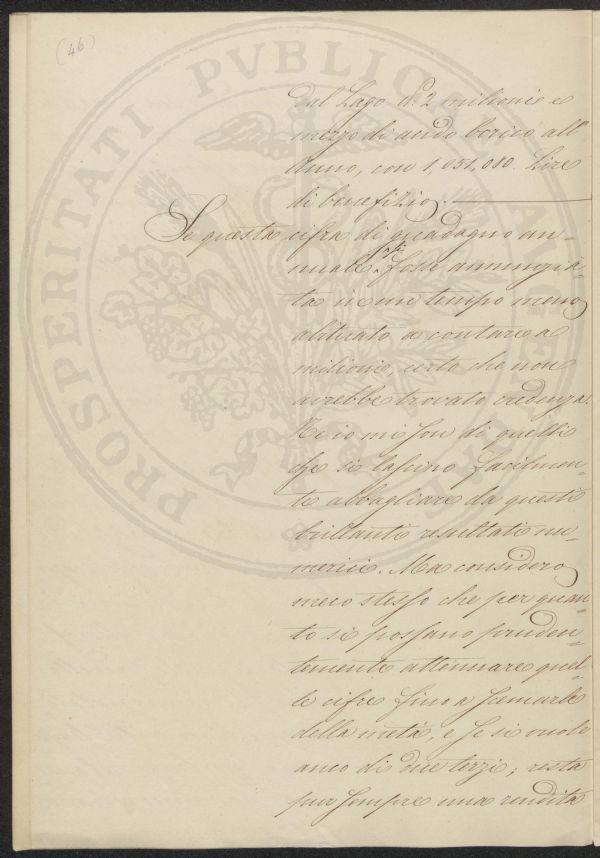 (46)
dal Lago di 2 milioni e
mezzo di acido borico all'
Anno, con 1,051,080. Lire
di benefizio.
Se questa cifra di guadagno an-
nuale fosse annunzia-
ta in un tempo meno
abituato a contare a
milioni, certo che non
avrebbe trovato credenza.
Ne io mi son di quelli
che si lasciano facilmen-
te abbagliare da questi
brillanti resultati nu-
merici. Ma considero
meco stesso che per quan-
to si possano pruden-
temente attenuare quel-
le cifre fino a scemarle
della metà, e se si vuole
anco di due terzi; resta
pur sempre una rendita
PROSPERITATI PVBLICAE AVGENDAE